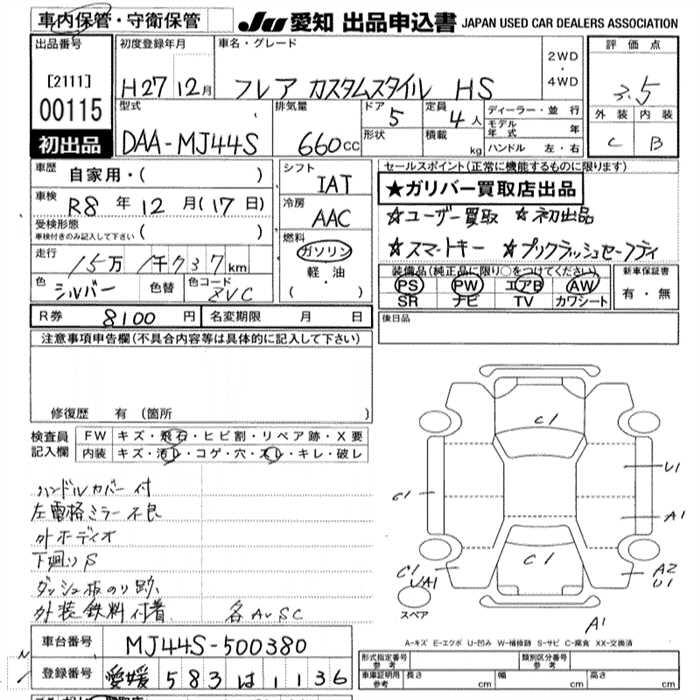 車内保管・守衛保管
JU 愛知 出品申込書 JAPAN USED CAR DEALERS ASSOCIATION
出品番号
[2111]
00115
初出品
初度登録年月
H27 12月
車名・グレード
フレア カスタムスタイル HS
2WD
・
4WD
型式
DAA-MJ44S
排気量
660cc
ドア
5
形状
定員
4人
積載
kg
ディーラー・並 行
モデル年式 年
ハンドル 左・右
評価点
3.5
外装 内装
C B
車歴
自家用・( )
車検
R8年12月(17日)
受検形態
車検付きのみ記入して下さい ( )
走行
15万 1千737km
色
シルバー
色替
色コード
ZVC
シフト
IAT
冷房
AAC
燃料
ガソリン
軽 油
( )
セールスポイント(正常に機能するものに限ります)
★ガリバー買取店出品
☆ユーザー買取 ☆初出品
☆スマートキー ☆プリクラッシュセーフティ
装備品(純正品に限り○をつけてください)
PS PW エアB AW
SR ナビ TV カワシート
新車保証書
有・無
後日品
R券 8100円
名変期限 月 日
注意事項申告欄(不具合内容等は具体的に記入して下さい)
修復歴 有 (箇所 )
検査員記入欄
FW キズ・飛石・ヒビ割・リペア跡・X要
内装 キズ・汚レ・コゲ・穴・スレ・キレ・破レ
ハンドルカバー付
左電格ミラー不良
外ボディオ
下廻りS
ダッシュ板のり跡
外装鉄粉付着 各AUSC
C1
C1
U1
A1
C1
C1
UA1
A2
U1
A1
スペア
A-キズ E-エクボ U-凹み W-補修跡 S-サビ C-腐食 XX-交換済
車台番号
MJ44S-500380
登録番号
愛媛 583 は 1136
形式指定番号
参考
類別区分番号
参考
車庫証明用
参考
長さ cm
幅 cm
高さ cm